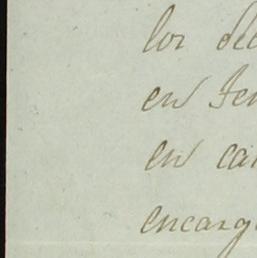 los de
en Ten
en car
encarg